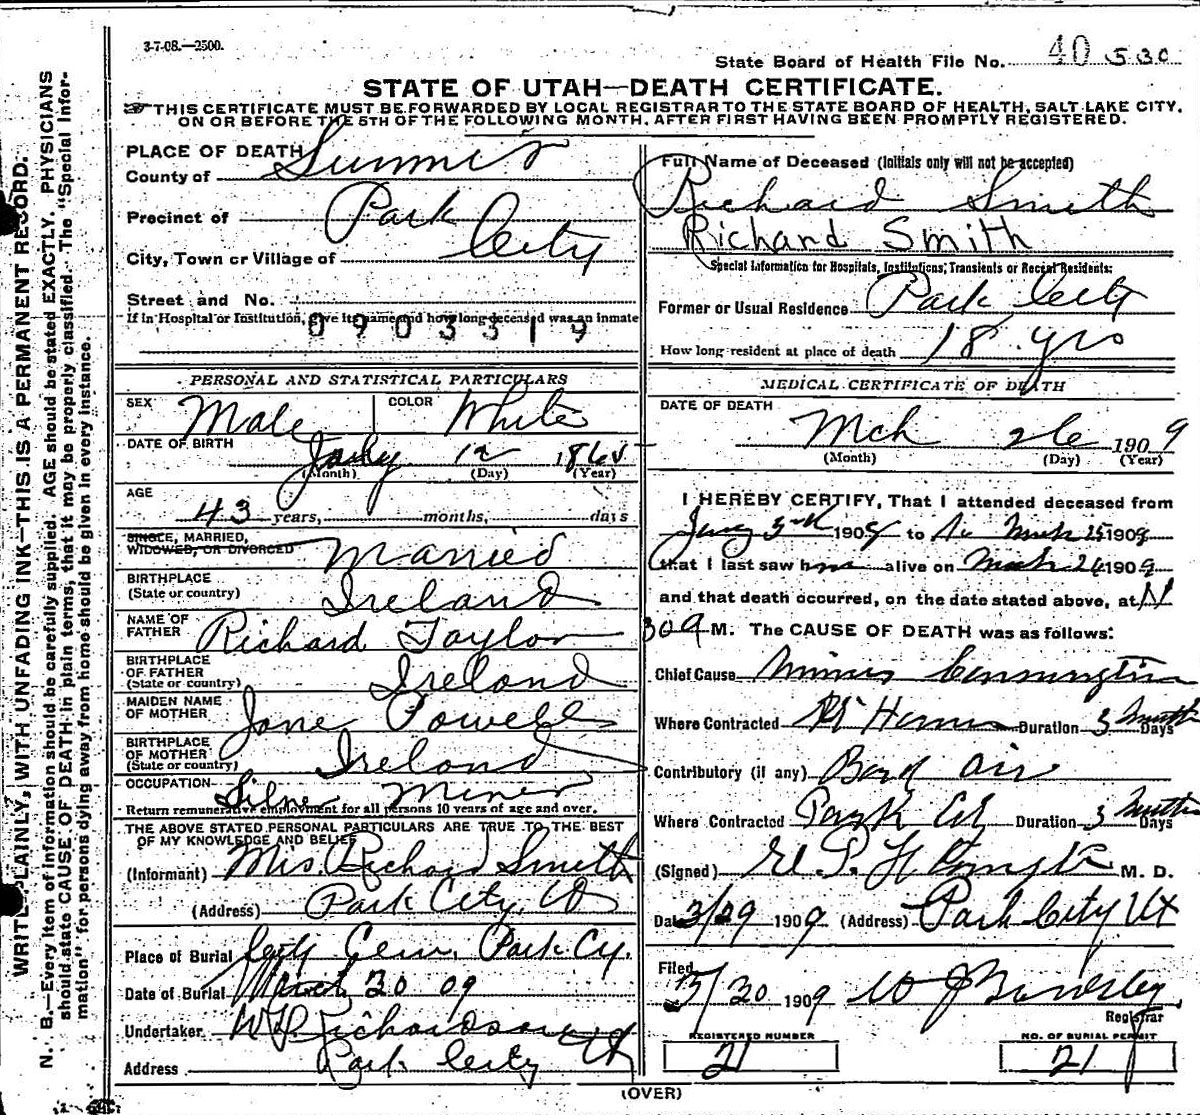 3-7-08.—2500.
State Board of Health File No. 40 530
STATE OF UTAH—DEATH CERTIFICATE.
THIS CERTIFICATE MUST BE FORWARDED BY LOCAL REGISTRAR TO THE STATE BOARD OF HEALTH, SALT LAKE CITY,
ON OR BEFORE THE 5TH OF THE FOLLOWING MONTH, AFTER FIRST HAVING BEEN PROMPTLY REGISTERED.
WRITE PLAINLY, WITH UNFADING INK—THIS IS A PERMANENT RECORD.
N. B.—Every item of information should be carefully supplied. AGE should be stated EXACTLY. PHYSICIANS
should state CAUSE OF DEATH in plain terms, that it may be properly classified. The "Special Infor-
mation" for persons dying away from home should be given in every instance.
PLACE OF DEATH
County of Summit
Precinct of Park
City, Town or Village of City
Street and No.
If in Hospital or Institution, give its name and how long deceased was an inmate
0903319
PERSONAL AND STATISTICAL PARTICULARS
SEX Male COLOR White
DATE OF BIRTH
July 12 1865
(Month) (Day) (Year)
AGE
43 years, months, days
SINGLE, MARRIED,
WIDOWED, OR DIVORCED Married
BIRTHPLACE
(State or country) Ireland
NAME OF
FATHER Richard Taylor
BIRTHPLACE
OF FATHER
(State or country) Ireland
MAIDEN NAME
OF MOTHER Jane Powell
BIRTHPLACE
OF MOTHER
(State or country) Ireland
OCCUPATION Silver Miner
Return remunerative employment for all persons 10 years of age and over.
THE ABOVE STATED PERSONAL PARTICULARS ARE TRUE TO THE BEST
OF MY KNOWLEDGE AND BELIEF
(Informant) Mrs. Richard Smith
(Address) Park City, Ut
Place of Burial City Cem. Park Cy.
Date of Burial March 30 09
Undertaker W Richardson
Address Park City Ut
Full Name of Deceased (Initials only will not be accepted)
Richard Smith
Richard Smith
Special Information for Hospitals, Institutions, Transients or Recent Residents:
Former or Usual Residence Park City
How long resident at place of death 18 yrs
MEDICAL CERTIFICATE OF DEATH
DATE OF DEATH
Mch 26 1909
(Month) (Day) (Year)
I HEREBY CERTIFY, That I attended deceased from
190 to 25 1909
that I last saw him alive on 1909
and that death occurred, on the date stated above, at
M. The CAUSE OF DEATH was as follows:
Chief Cause Miners Consumption
Where Contracted Duration 3 Months Days
Contributory (if any) Bad air
Where Contracted Park City Duration 3 Months Days
(Signed) M. D.
Date 3/29 1909 (Address) Park City Ut
Filed
3/30 1909
Registrar
REGISTERED NUMBER
21
NO. OF BURIAL PERMIT
21
(OVER)